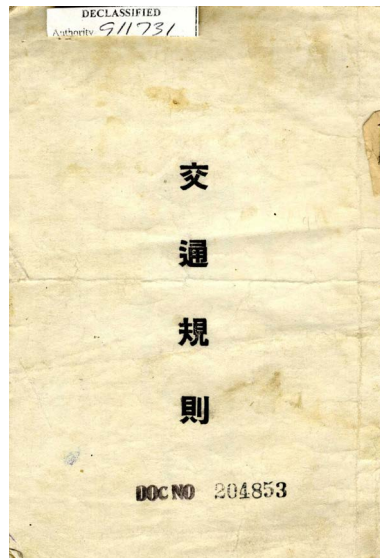 DECLASSIFIED
Authority 911731
交通規則
DOC NO 204853